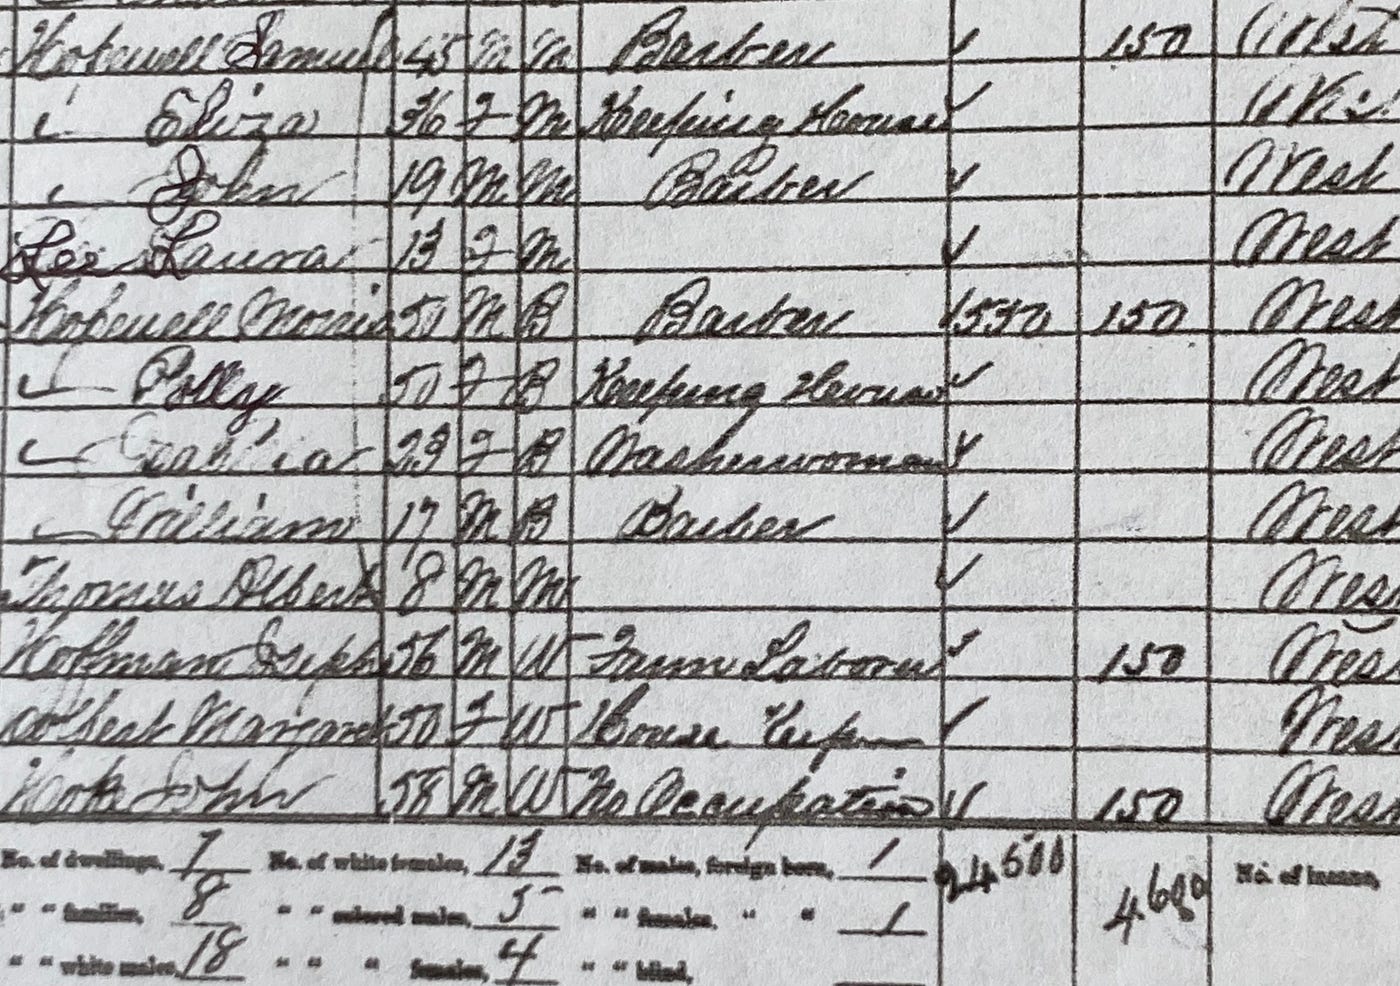 Hopewell Samuel 45 M M Barber ✓ 150
" Eliza 36 F M Keeping House ✓
" John 19 M M Barber ✓ West
Lee Laura 13 F M ✓ West
Hopewell Morris 50 M B Barber 1550 150 West
" Polly 50 F B Keeping House ✓ West
" 23 F B Washerwoman ✓ West
" William 17 M B Barber ✓ West
Thomas Albert 8 M M ✓ Wes
Hoffman Joseph 56 M W Farm Laborer ✓ 150 Wes
Margaret 50 F W House Keeper ✓ Wes
John 58 M W No Occupation ✓ 150 Wes
No. of dwellings, 7 No. of white females, 13 No. of males, foreign born, 1 24500 No. of insane,
" " families, 8 " " colored males, 5 " " females, " " 1 4600
" " white males, 18 " " " females, 4 " " blind,